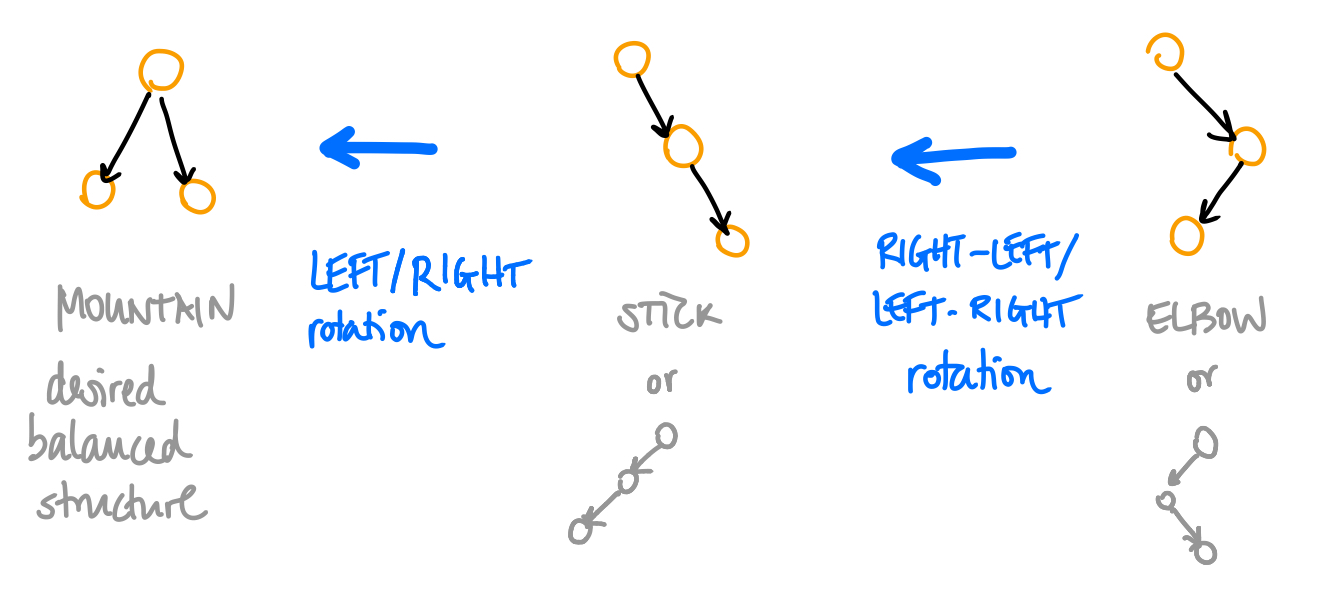 MOUNTAIN
desired
balanced
structure
LEFT/RIGHT
rotation
STICK
or
RIGHT-LEFT/
LEFT-RIGHT
rotation
ELBOW
or